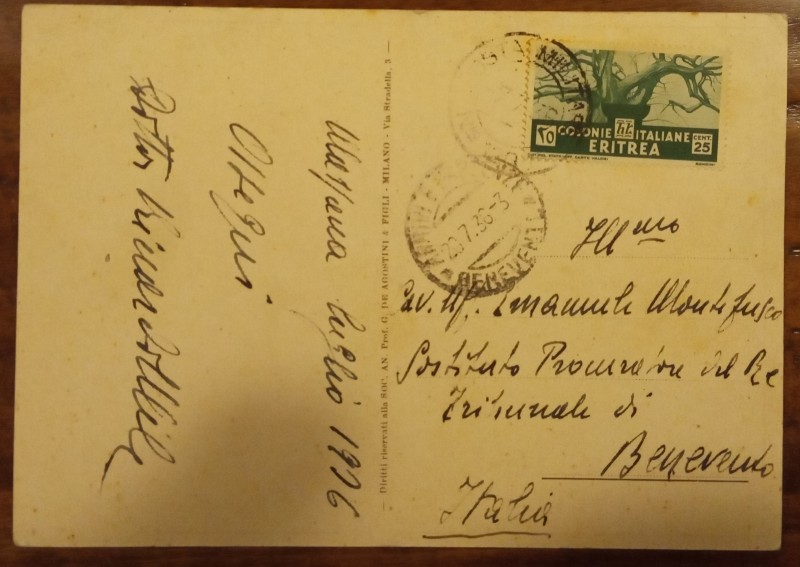 Massaua Luglio 1936
Ossequi
Dottor
Diritti riservati alla SOC. AN. Prof. G. DE AGOSTINI & FIGLI - MILANO - Via Stradella, 3
COLONIE ITALIANE
ERITREA
CENT. 25
٢٥
MILITARE
BENEVENTO
29.7.36
Ill mo
Cav. Uff. Emanuele Montefusco
Sostituto Procuratore del Re
Tribunale di
Benevento
Italia